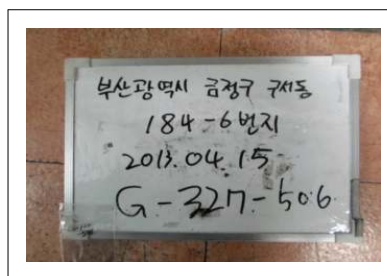 부산광역시 금정구 구서동
184-6번지
2013.04.15
G-327-506